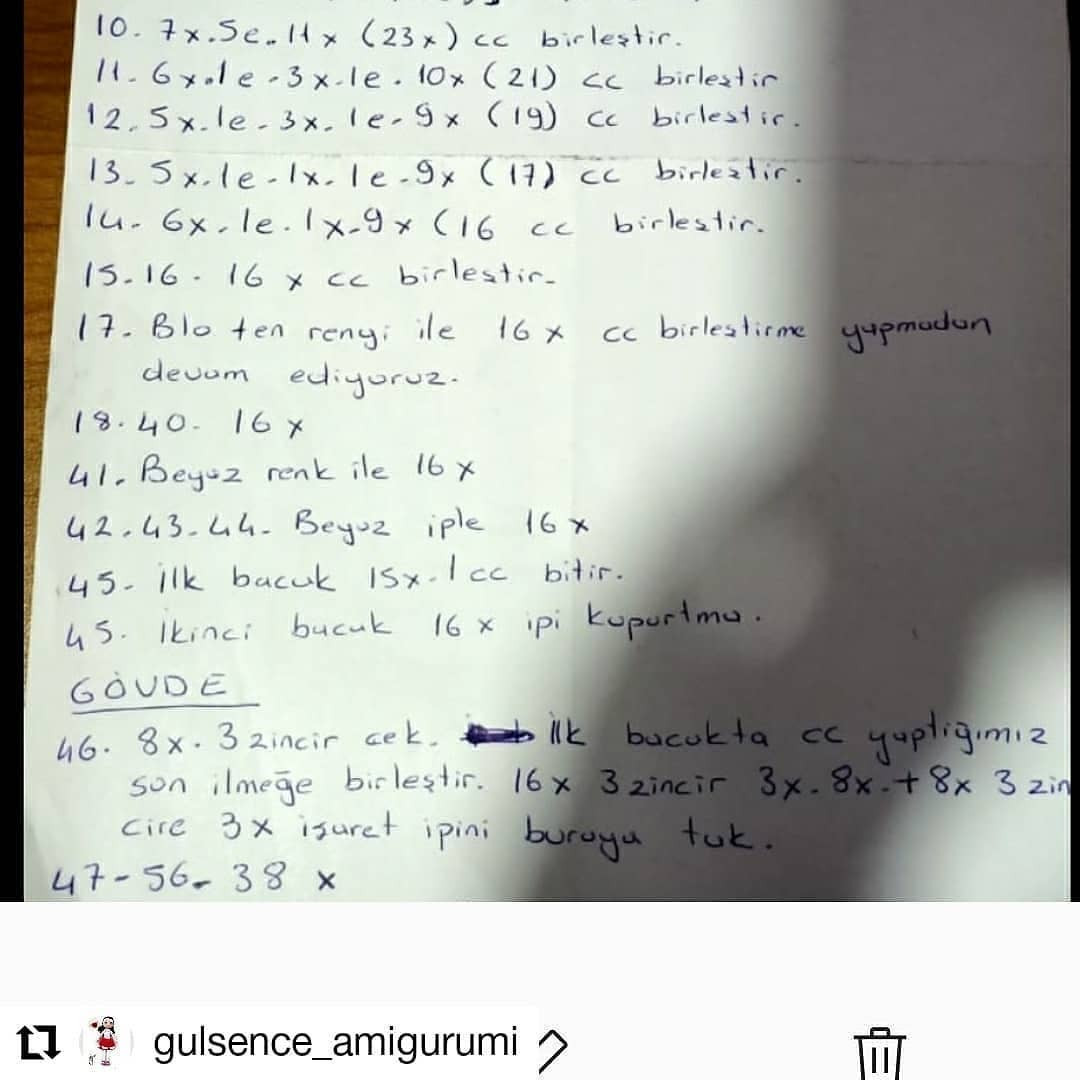 10. 7x.5e.11x (23x) cc birleştir.
11. 6x.1e-3x-1e. 10x (21) cc birleştir
12. 5x.1e-3x.1e-9x (19) cc birleştir.
13. 5x.1e-1x.1e-9x (17) cc birleştir.
14. 6x.1e.1x-9x (16 cc birleştir.
15.16. 16 x cc birleştir.
17. Blo ten rengi ile 16 x cc birleştirme yapmadan
devam ediyoruz.
18.40. 16 x
41. Beyaz renk ile 16 x
42.43.44. Beyaz iple 16 x
45. ilk bacak 15x.1 cc bitir.
45. İkinci bacak 16 x ipi kopartma.
GÖVDE
46. 8x. 3 zincir çek. ilk bacakta cc yaptığımız
son ilmeğe birleştir. 16 x 3 zincir 3x. 8x.+ 8x 3 zin
cire 3x işaret ipini buraya tak.
47-56- 38 x
gulsence_amigurumi